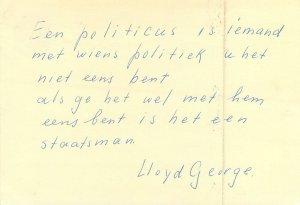 Een politicus is iemand
met wiens politiek u het
niet eens bent
als ge het wel met hem
eens bent is het een
staatsman.
Lloyd George.